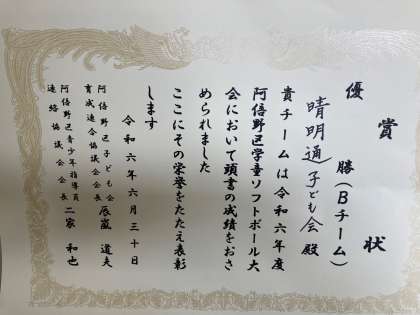 賞状
優勝(Bチーム)
晴明通子ども会殿
貴チームは令和六年度
阿倍野区学童ソフトボール大
会において頭書の成績をおさ
められました
ここにその栄誉をたたえ表彰
します
令和六年六月三十日
阿倍野区子ども会
育成連合協議会会長 辰嵐 道夫
阿倍野区青少年指導員
連絡協議会会長 二家 和也